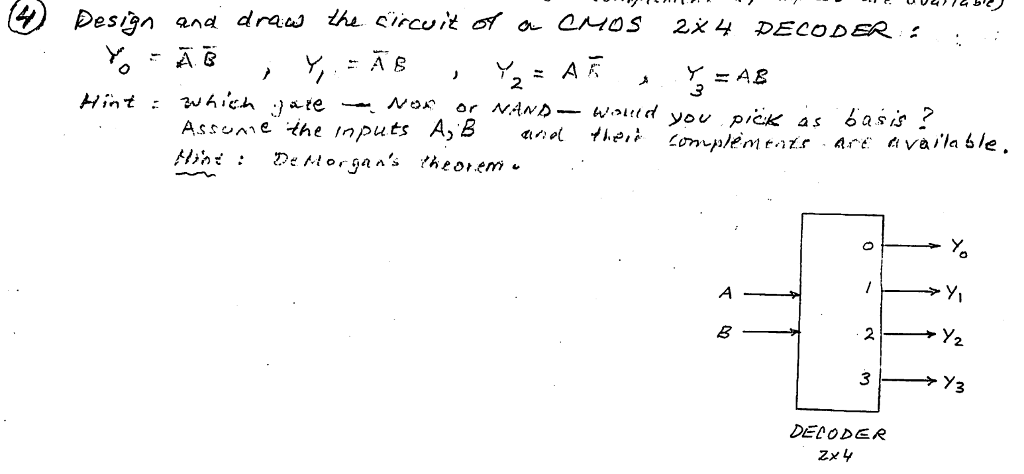 (4) Design and draw the circuit of a CMOS 2x4 DECODER :
Y₀ = A̅ B̅ , Y₁ = A̅ B , Y₂ = A B̅ , Y₃ = AB
Hint : which gate — NOR or NAND — would you pick as basis ?
Assume the inputs A, B and their complements are available.
Hint : DeMorgan's theorem.
0 Y₀
A 1 Y₁
B 2 Y₂
3 Y₃
DECODER
2x4